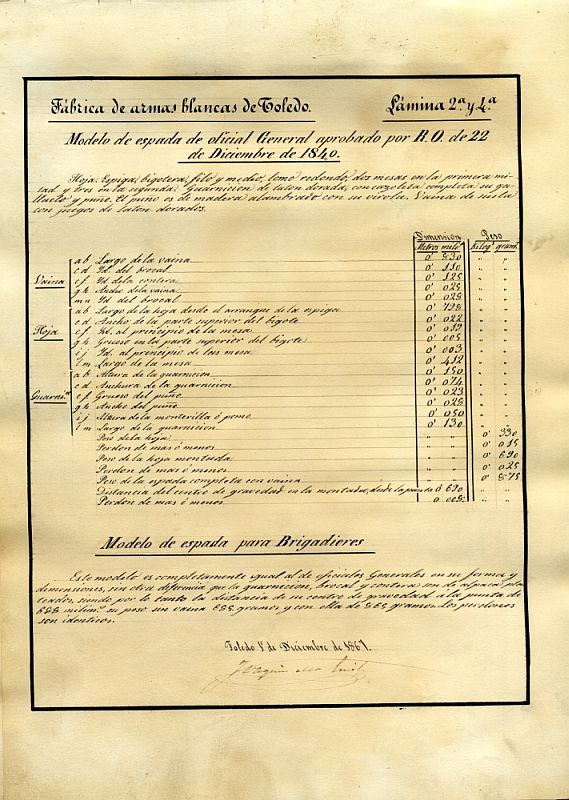 Fábrica de armas blancas de Toledo. Lámina 2ª y 4ª
Modelo de espada de oficial General aprobado por R. O. de 22
de Diciembre de 1840.
Hoja. Espiga, bigotera, filo y medio, lomo redondo, dos mesas en la primera mi-
tad y tres en la segunda. Guarnicion de laton dorada, con cazoleta completa su ga-
lluelo y puño. El puño es de madera alambrado con su virola. Vaina de suela
con juegos de laton dorados.
Dimension Peso
Metros milº kilogº gramº
Vaina
a b Largo de la vaina 0' 830
c d Id. del brocal 0' 110
e f Id de la contera 0' 125
g h Ancho de la vaina 0' 025
m n Id del brocal 0' 028
Hoja
a b Largo de la hoja desde el arranque de la espiga 0' 798
c d Ancho de la parte superior del bigote 0' 022
e f Id. al principio de la mesa 0' 019
g h Grueso en la parte superior del bigote 0' 005
i j Id. al principio de las mesas 0' 003
l m Largo de la mesa 0' 412
Guarnⁿ
a b Altura de la guarnicion 0' 150
c d Anchura de la guarnicion 0' 074
e f Grueso del puño 0' 023
g h Ancho del puño 0' 028
i j Altura de la monterilla ó pomo 0' 050
l m Largo de la guarnicion 0' 130
Peso de la hoja 0' 330
Perdon de mas ó menos 0' 015
Peso de la hoja montada 0' 690
Perdon de mas ó menos 0' 025
Peso de la espada completa con vaina 0' 875
Distancia del centro de gravedad en la montada, desde la punta 0' 690
Perdon de mas ó menos 0' 008
Modelo de espada para Brigadieres
Este modelo es completamente igual al de oficiales Generales en su forma y
dimensiones, sin otra diferencia que la guarnicion, brocal y contera son de alpaca pla-
teados, siendo por lo tanto la distancia de su centro de gravedad á la punta de
688 milimº su peso sin vaina 685 gramos y con ella de 865 gramos. Los perdones
son identicos.
Toledo 1º de Diciembre de 1867.
Joaquin